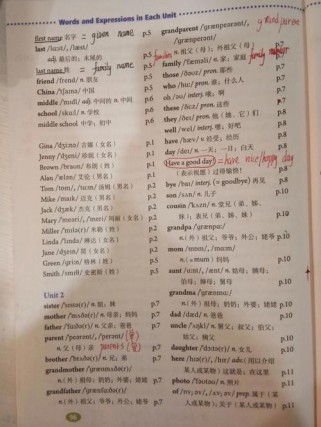 Words and Expressions in Each Unit
first name 名字 = given name p.5
last /lɑːst/, /læst/
adj. 最后的；末尾的 p.5
last name 姓 = family name p.5
friend /frend/ n. 朋友 p.5
China /ˈtʃaɪnə/ 中国 p.5
middle /ˈmɪdl/ adj. 中间的 n. 中间 p.6
school /skuːl/ n. 学校 p.6
middle school 中学；初中 p.6
Gina /ˈdʒiːnə/ 吉娜（女名） p.1
Jenny /ˈdʒeni/ 珍妮（女名） p.1
Brown /braʊn/ 布朗（姓） p.1
Alan /ˈælən/ 艾伦（男名） p.2
Mike /maɪk/ 迈克（男名） p.2
Jack /dʒæk/ 杰克（男名） p.2
Linda /ˈlɪndə/ 琳达（女名） p.2
Jane /dʒeɪn/ 简（女名） p.2
Green /griːn/ 格林（姓） p.5
Smith /smɪθ/ 史密斯（姓） p.5
Unit 2
sister /ˈsɪstə(r)/ n. 姐；妹 p.7
mother /ˈmʌðə(r)/ n. 母亲；妈妈 p.7
father /ˈfɑːðə(r)/ n. 父亲；爸爸 p.7
parent /ˈpeərənt/, /ˈperənt/
n. 父（母）亲 parents p.7
brother /ˈbrʌðə(r)/ n. 兄；弟 p.7
grandmother /ˈgrænmʌðə(r)/
n.（外）祖母；奶奶；外婆；姥姥 p.7
grandfather /ˈgrænfɑːðə(r)/
n.（外）祖父；爷爷；外公；姥爷 p.7
grandparent /ˈgrænpeərənt/,
/ˈgrænperənt/
n. 祖父（母）；外祖父（母） p.7
family /ˈfæməli/ n. 家；家庭 p.7
those /ðəʊz/ pron. 那些 p.7
who /huː/ pron. 谁；什么人 p.7
oh /əʊ/ interj. 哦；啊 p.7
these /ðiːz/ pron. 这些 p.7
they /ðeɪ/ pron. 他（她、它）们 p.8
well /wel/ interj. 嗯；好吧 p.8
have /hæv/ v. 经受；经历 p.8
day /deɪ/ n. 一天；一日；白天 p.8
Have a good day! = have nice/happy day
（表示祝愿）过得愉快！ p.8
bye /baɪ/ interj. (= goodbye) 再见 p.8
son /sʌn/ n. 儿子 p.10
cousin /ˈkʌzn/ n. 堂兄（弟、姊、
妹）；表兄（弟、姊、妹） p.10
grandpa /ˈgrænpɑː/
n.（外）祖父；爷爷；外公；姥爷 p.10
mom /mɒm/, /mɑːm/
n. (= mum) 妈妈 p.10
aunt /ɑːnt/, /ænt/ n. 姑母；姨母；
伯母；婶母；舅母 p.10
grandma /ˈgrænmɑː/
n.（外）祖母；奶奶；外婆；姥姥 p.10
dad /dæd/ n. 爸爸 p.10
uncle /ˈʌŋkl/ n. 舅父；叔父；伯父；
姑父；姨父 p.10
daughter /ˈdɔːtə(r)/ n. 女儿 p.10
here /hɪə(r)/, /hɪr/ adv.（用以介绍
某人或某物）这就是；在这里 p.11
photo /ˈfəʊtəʊ/ n. 照片 p.11
of /əv/ prep. 属于（某
人或某物）；关于（某人或某物） p.11